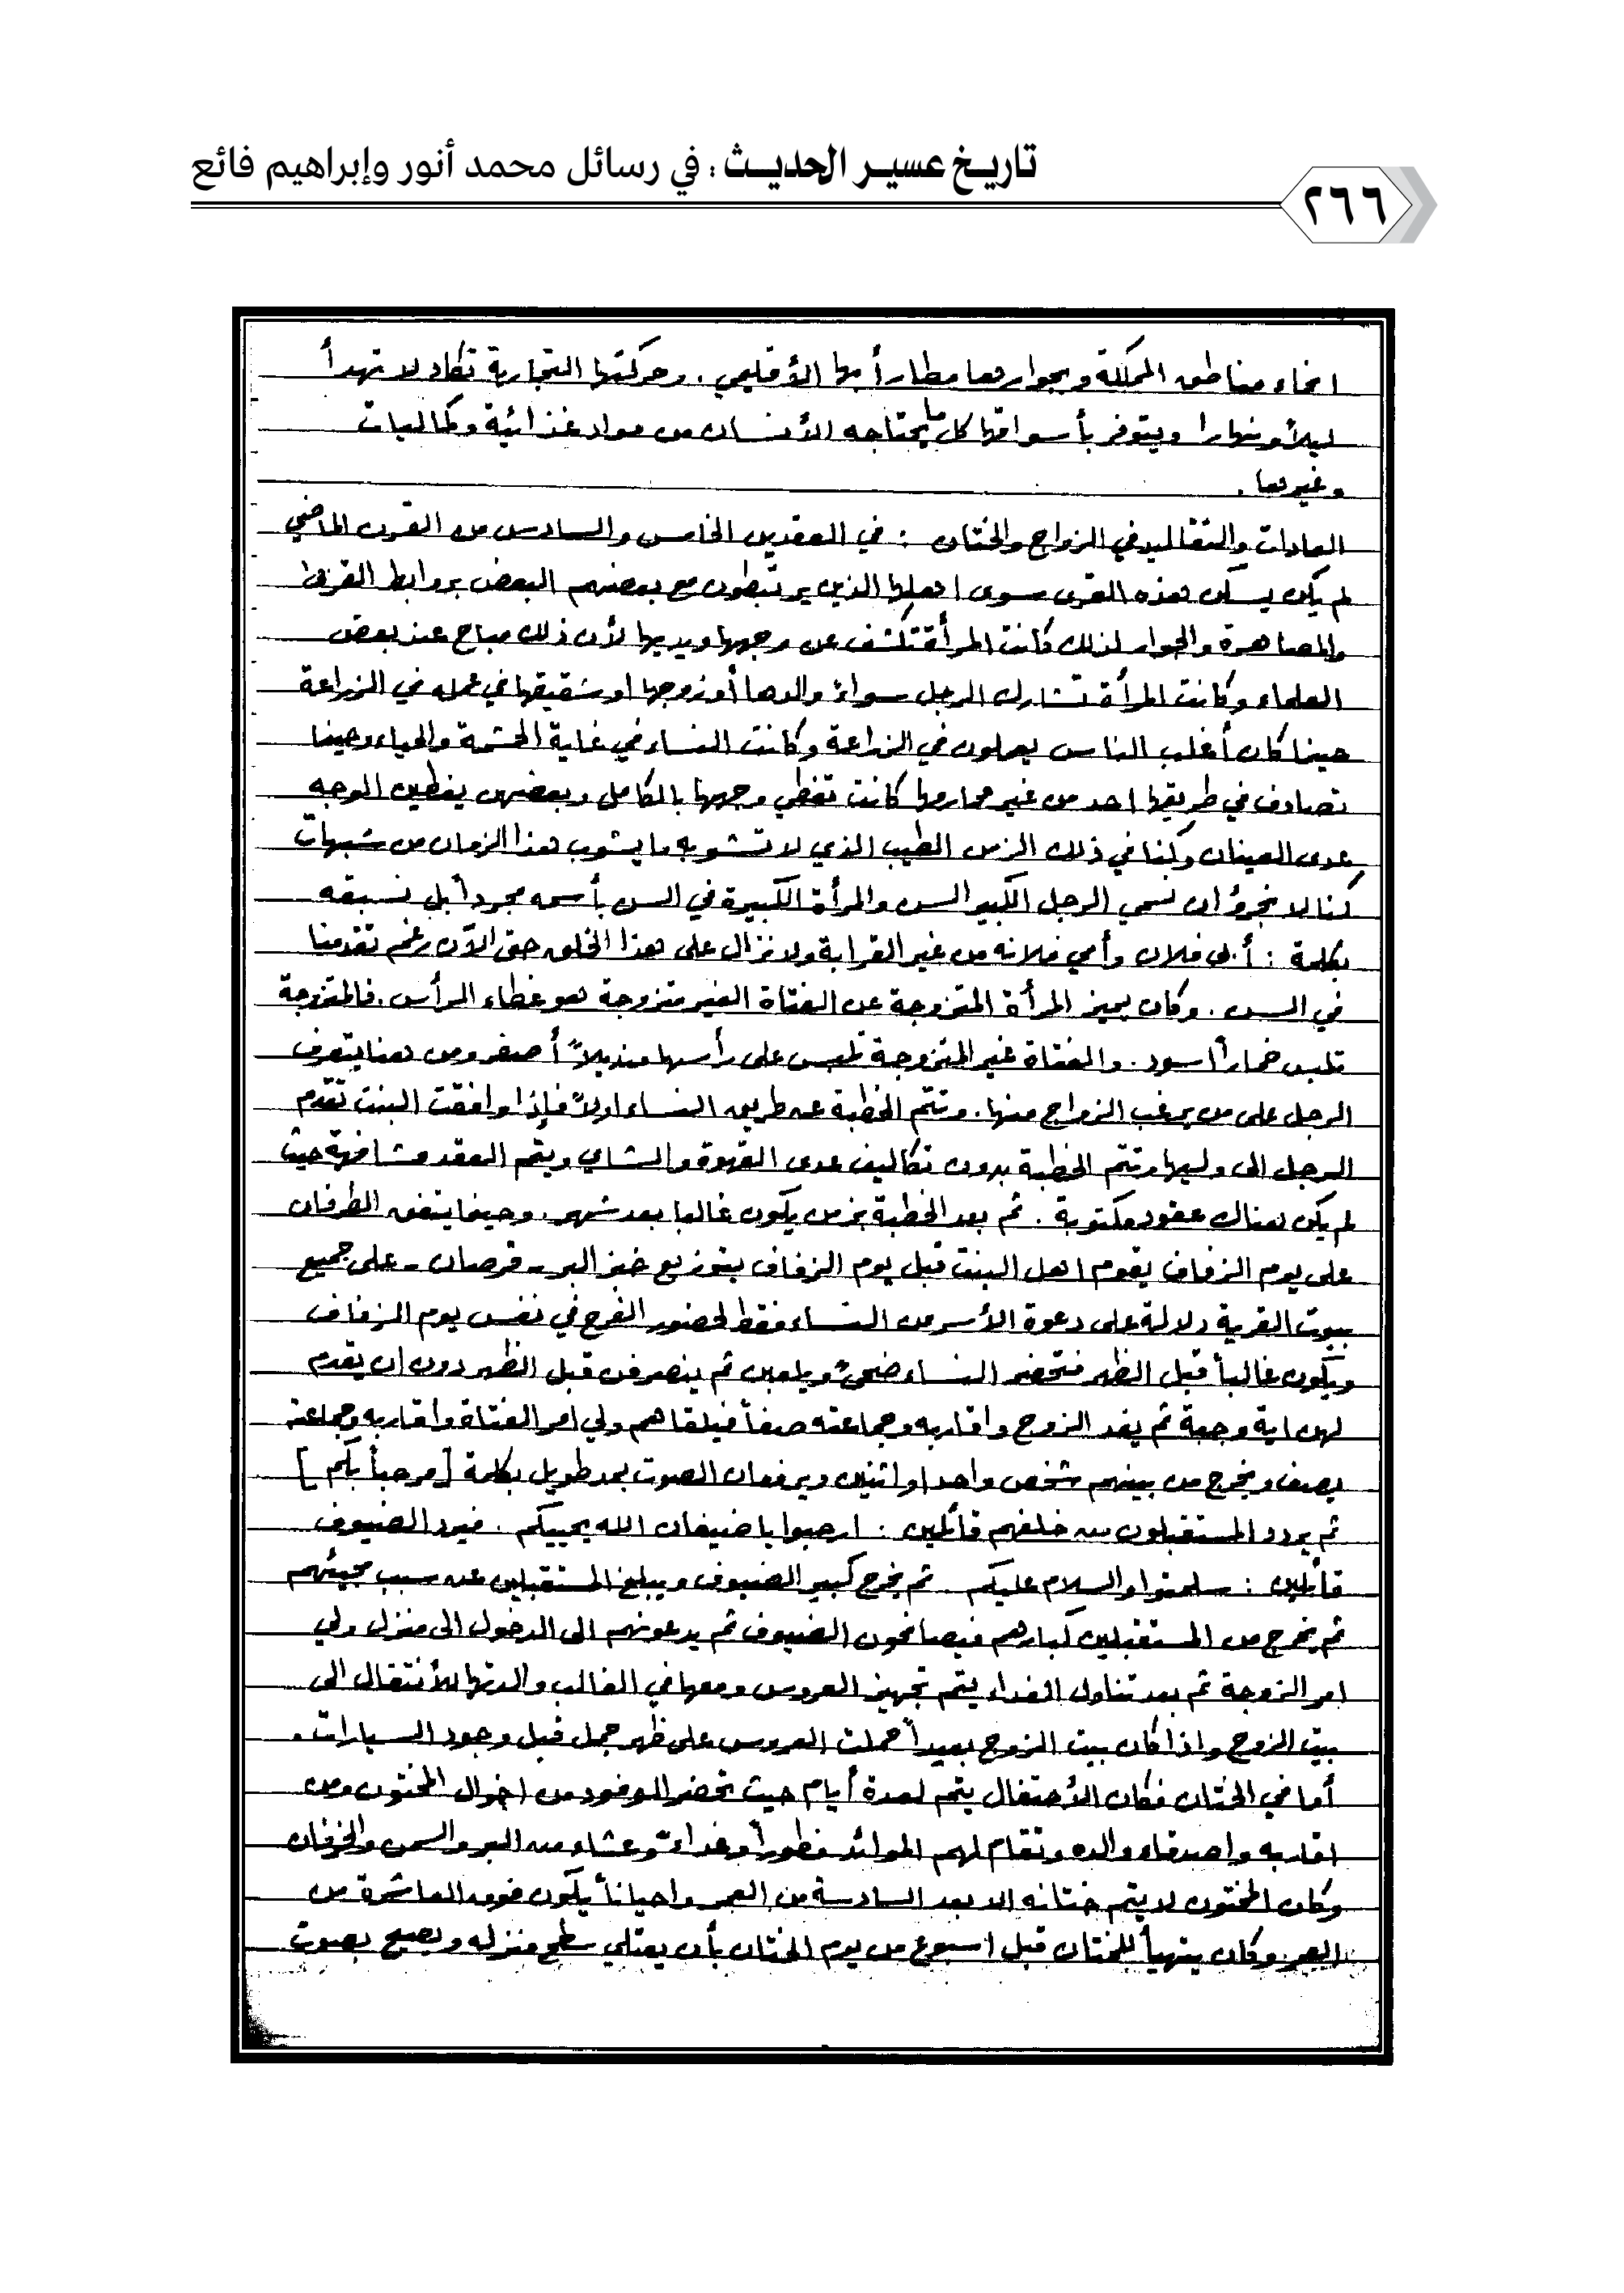 تاريخ عسير الحديث : في رسائل محمد أنور وإبراهيم فائع
٢٦٦
انحاء مناطق المملكة وبجوارها مطار أبها الأقليمي . وحركتها التجارية تكاد لا تهدأ
ليلاً ونهارا ويتوفر بأسواقها كل ما يحتاجه الأنسان من مواد غذائية وكماليات
وغيرها .
العادات والتقاليد في الزواج والختان : في العقدين الخامس والسادس من القرن الماضي
لم يكن يسكن هذه القرى سوى اهلها الذين يرتبطون مع بعضهم البعض بروابط القربى
والمصاهرة والجوار لذلك كانت المرأة تكشف عن وجهها ويديها لأن ذلك مباح عند بعض
العلماء وكانت المرأة تشارك الرجل سواءً والدها أو زوجها او شقيقها في عمله في الزراعة
حينما كان أغلب الناس يعملون في الزراعة وكانت النساء في غاية الحشمة والحياء وحينما
تصادف في طريقها احد من غير محارمها كانت تغطي وجهها بالكامل وبعضهن يغطين الوجه
عدى العينان وكنا في ذلك الزمن الطيب الذي لا تشوبه ما يشوب هذا الزمان من شبهات
كنا لا نجرؤ ان نسمي الرجل الكبير السن والمرأة الكبيرة في السن بأسمه مجرداً بل نسبقه
بكلمة : أبي فلان وأمي فلانه من غير القرابة ولا نزال على هذا الخلق حتى الآن رغم تقدمنا
في السن . وكان يميز المرأة المتزوجة عن الفتاة الغير متزوجة هو غطاء الرأس . فالمتزوجة
تلبس خماراً اسود . والفتاة غير المتزوجة تلبس على رأسها منديلاً أصفر ومن هنا يتعرف
الرجل على من يرغب الزواج منها . وتتم الخطبة عن طريق النساء اولاً فإذا وافقت البنت تقدم
الرجل الى وليها وتتم الخطبة بدون تكاليف عدى القهوة والشاي ويتم العقد مشافهة حيث
لم يكن هناك عقود مكتوبة . ثم بعد الخطبة بزمن يكون غالبا بعد شهر . وحينما يتفق الطرفان
على يوم الزفاف يقوم اهل البنت قبل يوم الزفاف بتوزيع خبز البر - قرصان - على جميع
بيوت القرية دلالة على دعوة الأسر من النساء فقط لحضور الفرح في نفس يوم الزفاف
ويكون غالباً قبل الظهر فتحضر النساء ضحىً ويلعبن ثم ينصرفن قبل الظهر دون ان يقدم
لهن اية وجبة ثم يفد الزوج واقاربه وجماعته صفاً فيلقاهم ولي امر الفتاة واقاربه وجماعته
بصف ويخرج من بينهم شخص واحد او اثنين ويرفعان الصوت بمد طويل بكلمة [ مرحباً بكم ]
ثم يردد المستقبلون من خلفهم قائلين : ارحبوا يا ضيفان الله يحييكم . فيرد الضيوف
قائلين : سلمتوا والسلام عليكم ثم يخرج كبير الضيوف ويبلغ المستقبلين عن سبب مجيئهم
ثم يخرج من المستقبلين كبارهم فيصافحون الضيوف ثم يدعونهم الى الدخول الى منزل ولي
امر الزوجة ثم بعد تناول الغداء يتم تجهيز العروس ومعها في الغالب والدتها للأنتقال الى
بيت الزوج واذا كان بيت الزوج بعيداً حملت العروس على ظهر جمل قبل وجود السيارات .
أما في الختان فكان الأحتفال يتم لعدة أيام حيث تحضر الوفود من اخوال المختون ومن
اقاربه واصدقاء والده وتقام لهم الموائد فطوراً وغداءً وعشاء من البر والسمن والخرفان
وكان المختون لا يتم ختانه الا بعد السادسة من العمر واحياناً يكون فوق العاشرة من
العمر وكان يتهيأ للختان قبل اسبوع من يوم الختان بأن يعتلي سطح منزله ويصيح بصوت